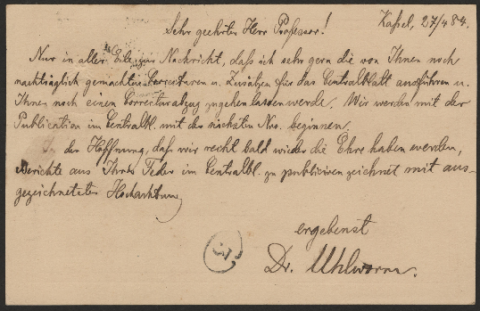 Kassel, 27/4 84.
Sehr geehrter Herr Professor!
Nur in aller Eile zur Nachricht, daß ich sehr gern die von Ihnen noch
nachträglich gemachten Correcturen u. Zusätze für das Centralblatt ausführen u.
Ihnen noch einen Correcturabzug zugehen lassen werde. Wir werden mit der
Publication im Centralbl. mit der nächsten Nro. beginnen.
In der Hoffnung, daß wir recht bald wieder die Ehre haben werden,
Berichte aus Ihrer Feder im Centralbl. zu publiciren zeichnet mit aus-
gezeichneter Hochachtung
ergebenst
Dr. Uhlworm.